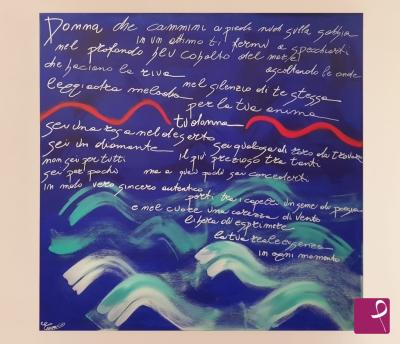 Donna che cammini a piedi nudi sulla sabbia
in un attimo ti fermi a specchiarti
nel profondo blu cobalto del mare
che baciano la riva ascoltando le onde
leggiadra melodia nel silenzio di te stessa
per la tua anima
tu donna
sei una rosa nel deserto
sei un diamante sei qualcosa di raro da trovare
non sei per tutti il più prezioso tra tanti
sei per pochi ma a quei pochi sai concederti
in modo vero sincero autentico
porti tra i capelli un seme di
e nel cuore una carezza di vento
libera di esprimere
la tua
in ogni momento